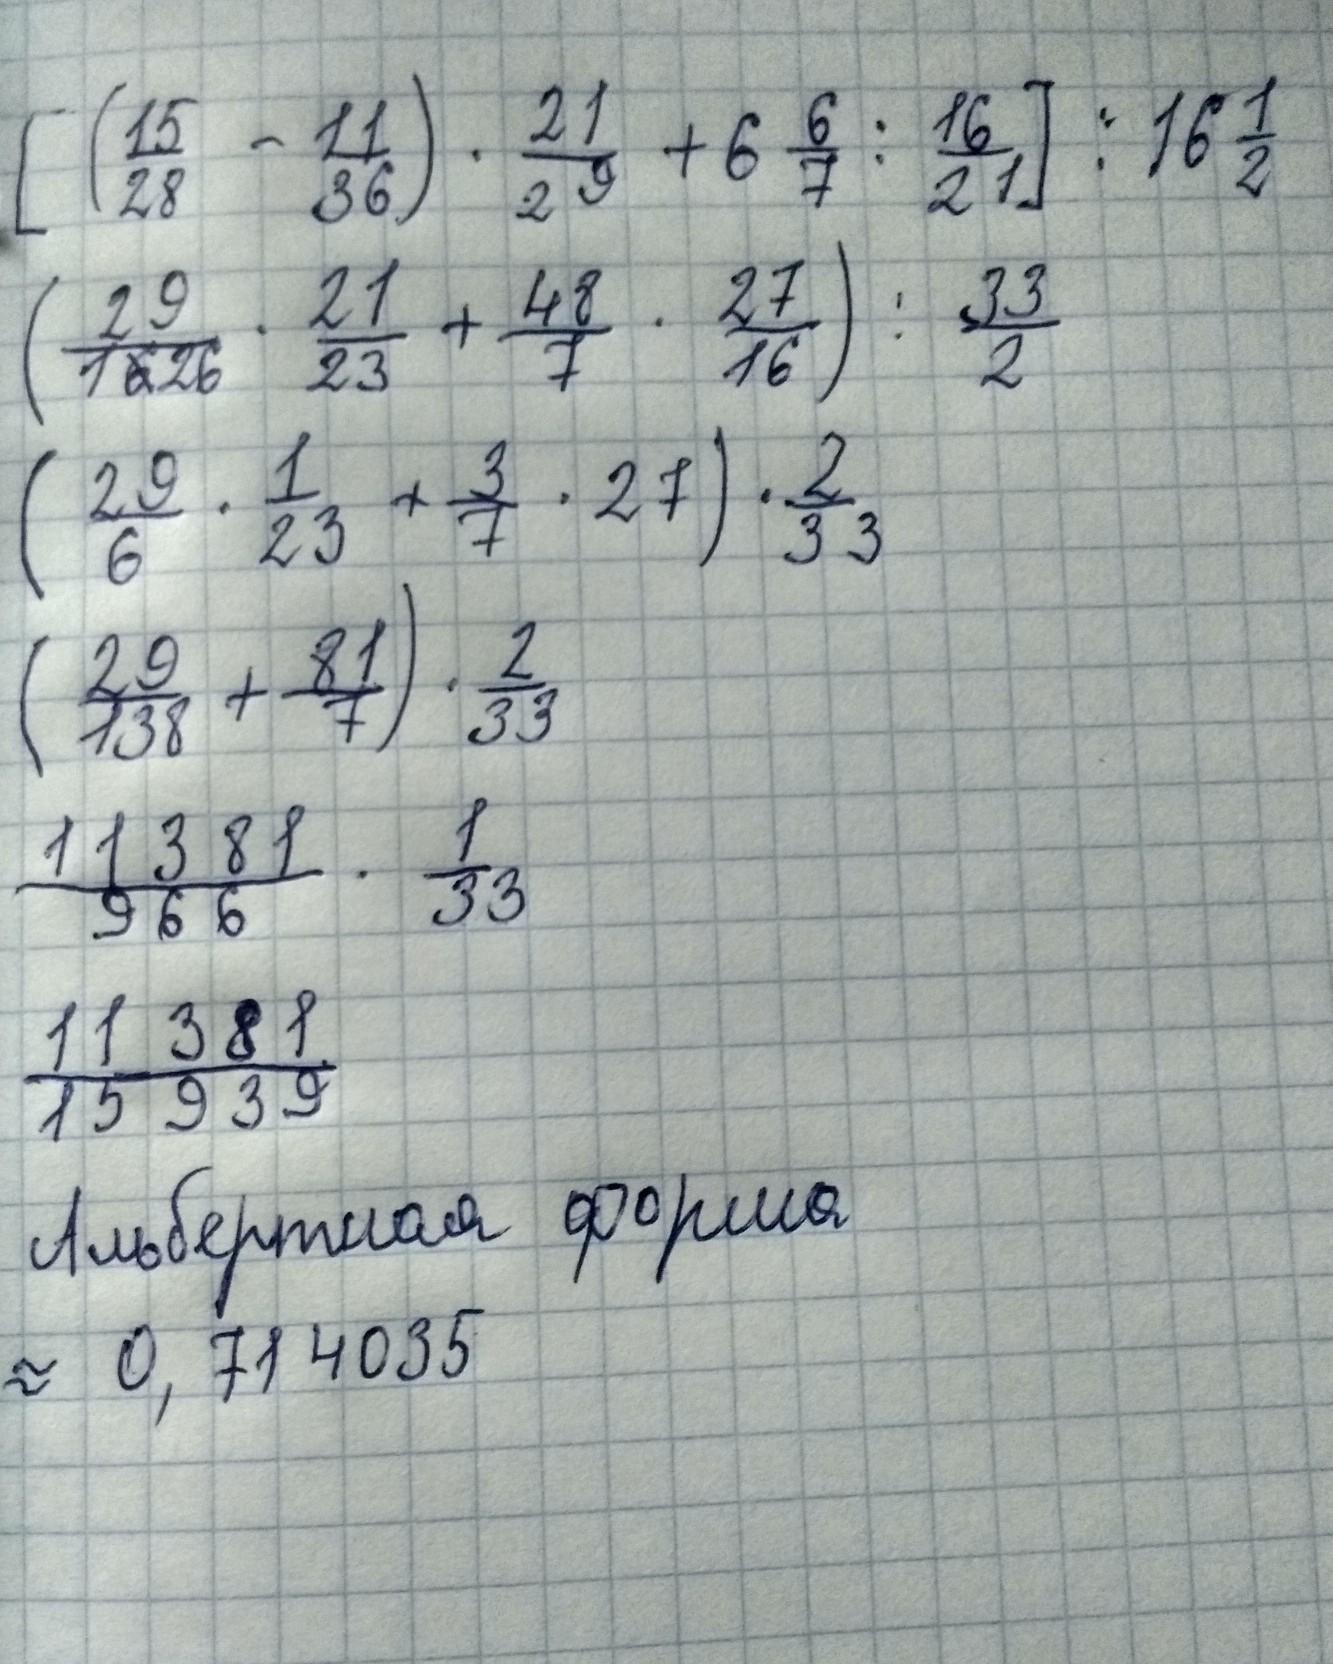 [(15/28 - 11/36) · 21/29 + 6 6/7 : 16/21] : 16 1/2
(29/126 · 21/23 + 48/7 · 27/16) : 33/2
(29/6 · 1/23 + 3/7 · 27) · 2/33
(29/138 + 81/7) · 2/33
11381/966 · 1/33
11381/15939
Альбертная форма
≈ 0,714035